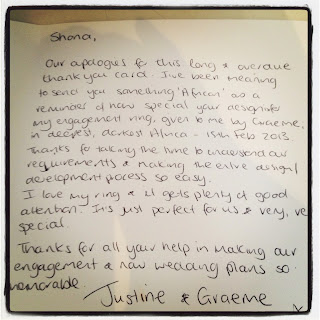 Shona,
Our apologies for this long & overdue
thank you card. I've been meaning
to send you something 'African' as a
reminder of how special your design for
my engagement ring, given to me by Graeme,
in deepest, darkest Africa - 15th Feb 2013.
Thanks for taking the time to understand our
requirements & making the entire design/
development process so easy.
I love my ring & it gets plenty of good
attention. It's just perfect for us & very, ve
special.
Thanks for all your help in making our
engagement & now wedding plans so
memorable.
Justine & Graeme